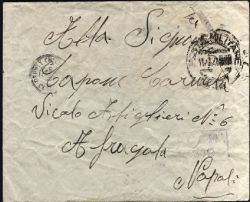 Alla Signora
Capone Carmela
Vicolo Artiglieri No 6
Afragola
Napoli